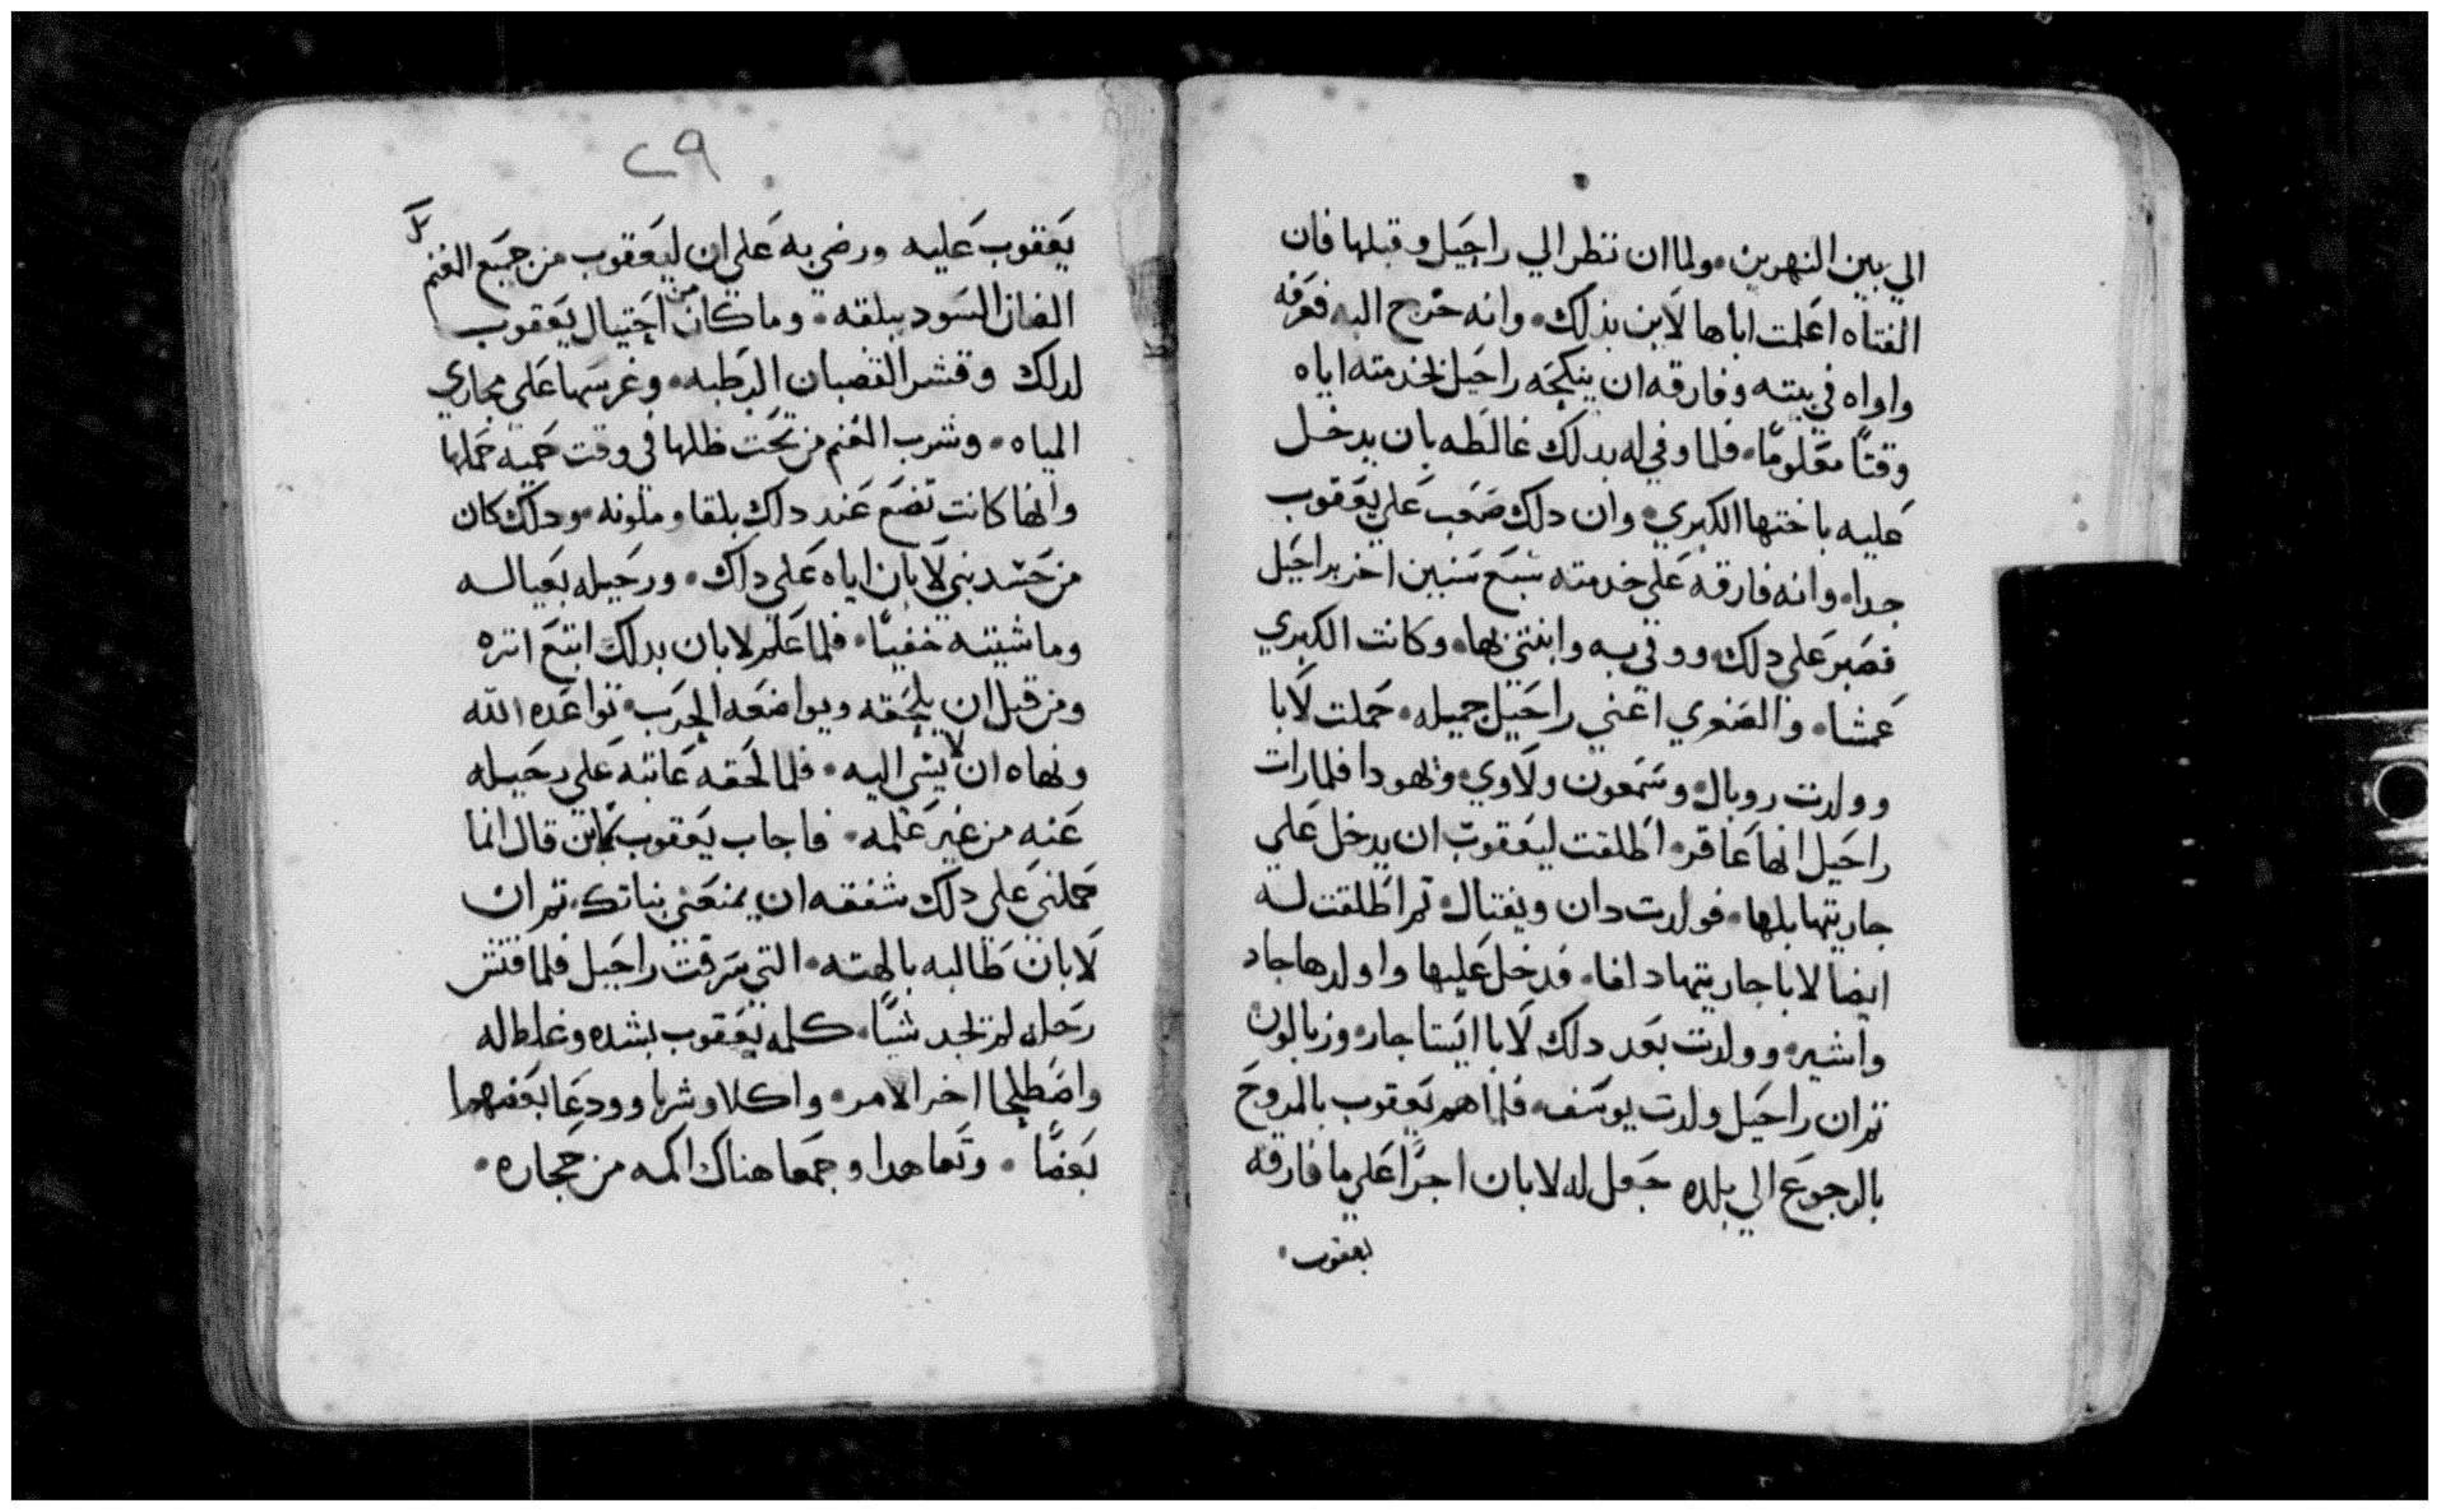 الي بين النهرين. ولما ان نظر الي راحيل وقبلها فان
الفتاه اعلمت اباها لابن بذلك. وانه خرج اليه فعرفه
واواه في بيته وفارقه ان ينكحه راحيل لخدمته اياه
وقتًا معلومًا. فلما وفي له بدلك غالطه بان يدخل
عليه باختها الكبري. وان دلك صعب علي يعقوب
جدا. وانه فارقه علي خدمته سبع سنين اخر براحيل
فصبر علي دلك. ووفي به وابتني بها. وكانت الكبري
عمشا. والصغري اعني راحيل جميله. حملت لايا
وولدت روبال. وسمعون ولاوي. ويهودا فلما رات
راحيل انها عاقر. اطلقت ليعقوب ان يدخل علي
جاريتها بلها. فولدت دان ويفتال. تم اطلقت له
ايضا لايا جاريتها دلفا. فدخل عليها واولدها جاد
واشير. وولدت بعد دلك لايا ايستاجار. وزبالون
تم ان راحيل ولدت يوسف. فلما هم يعقوب بالمروح
بالرجوع الي بلده جعل له لابان اجرًا علي ما فارقه
يعقوب.
٢٩
يعقوب عليه ورضي به علي ان ليعقوب من جميع الغنم كل
الضان السود ببلقه. وما كان من احتيال يعقوب
لدلك وقشر القضبان الرطبه. وغرسها علي مجاري
المياه. وشرب الغنم من تحت ظلها في وقت حميه حملها
وانها كانت تضع عند دلك بلقا وملونه. ودلك كان
من حسد بني لابان اياه علي دلك. ورحيله بعياله
وماشيته خفيًا. فلما علم لابان بدلك اتبع اتره
ومن قبل ان يلحقه ويواضعه الحرب. تواعده الله
ونهاه ان لا يسي اليه. فلما لحقه عاتبه علي رحيله
عنه من غير علمه. فاجاب يعقوب لابن قال انما
حملني علي دلك شفقه ان يمنعني بناتك. تم ان
لابان طالبه بالهته. التي سرقت راحيل فلما فتش
رحله لم يجد شيًا. كلمه يعقوب بشده وغلط له
واصطلحا اخر الامر. واكلا وشربا وودعا بعضهما
بعضًا. وتعاهدا وجمعا هناك اكمه من حجاره.